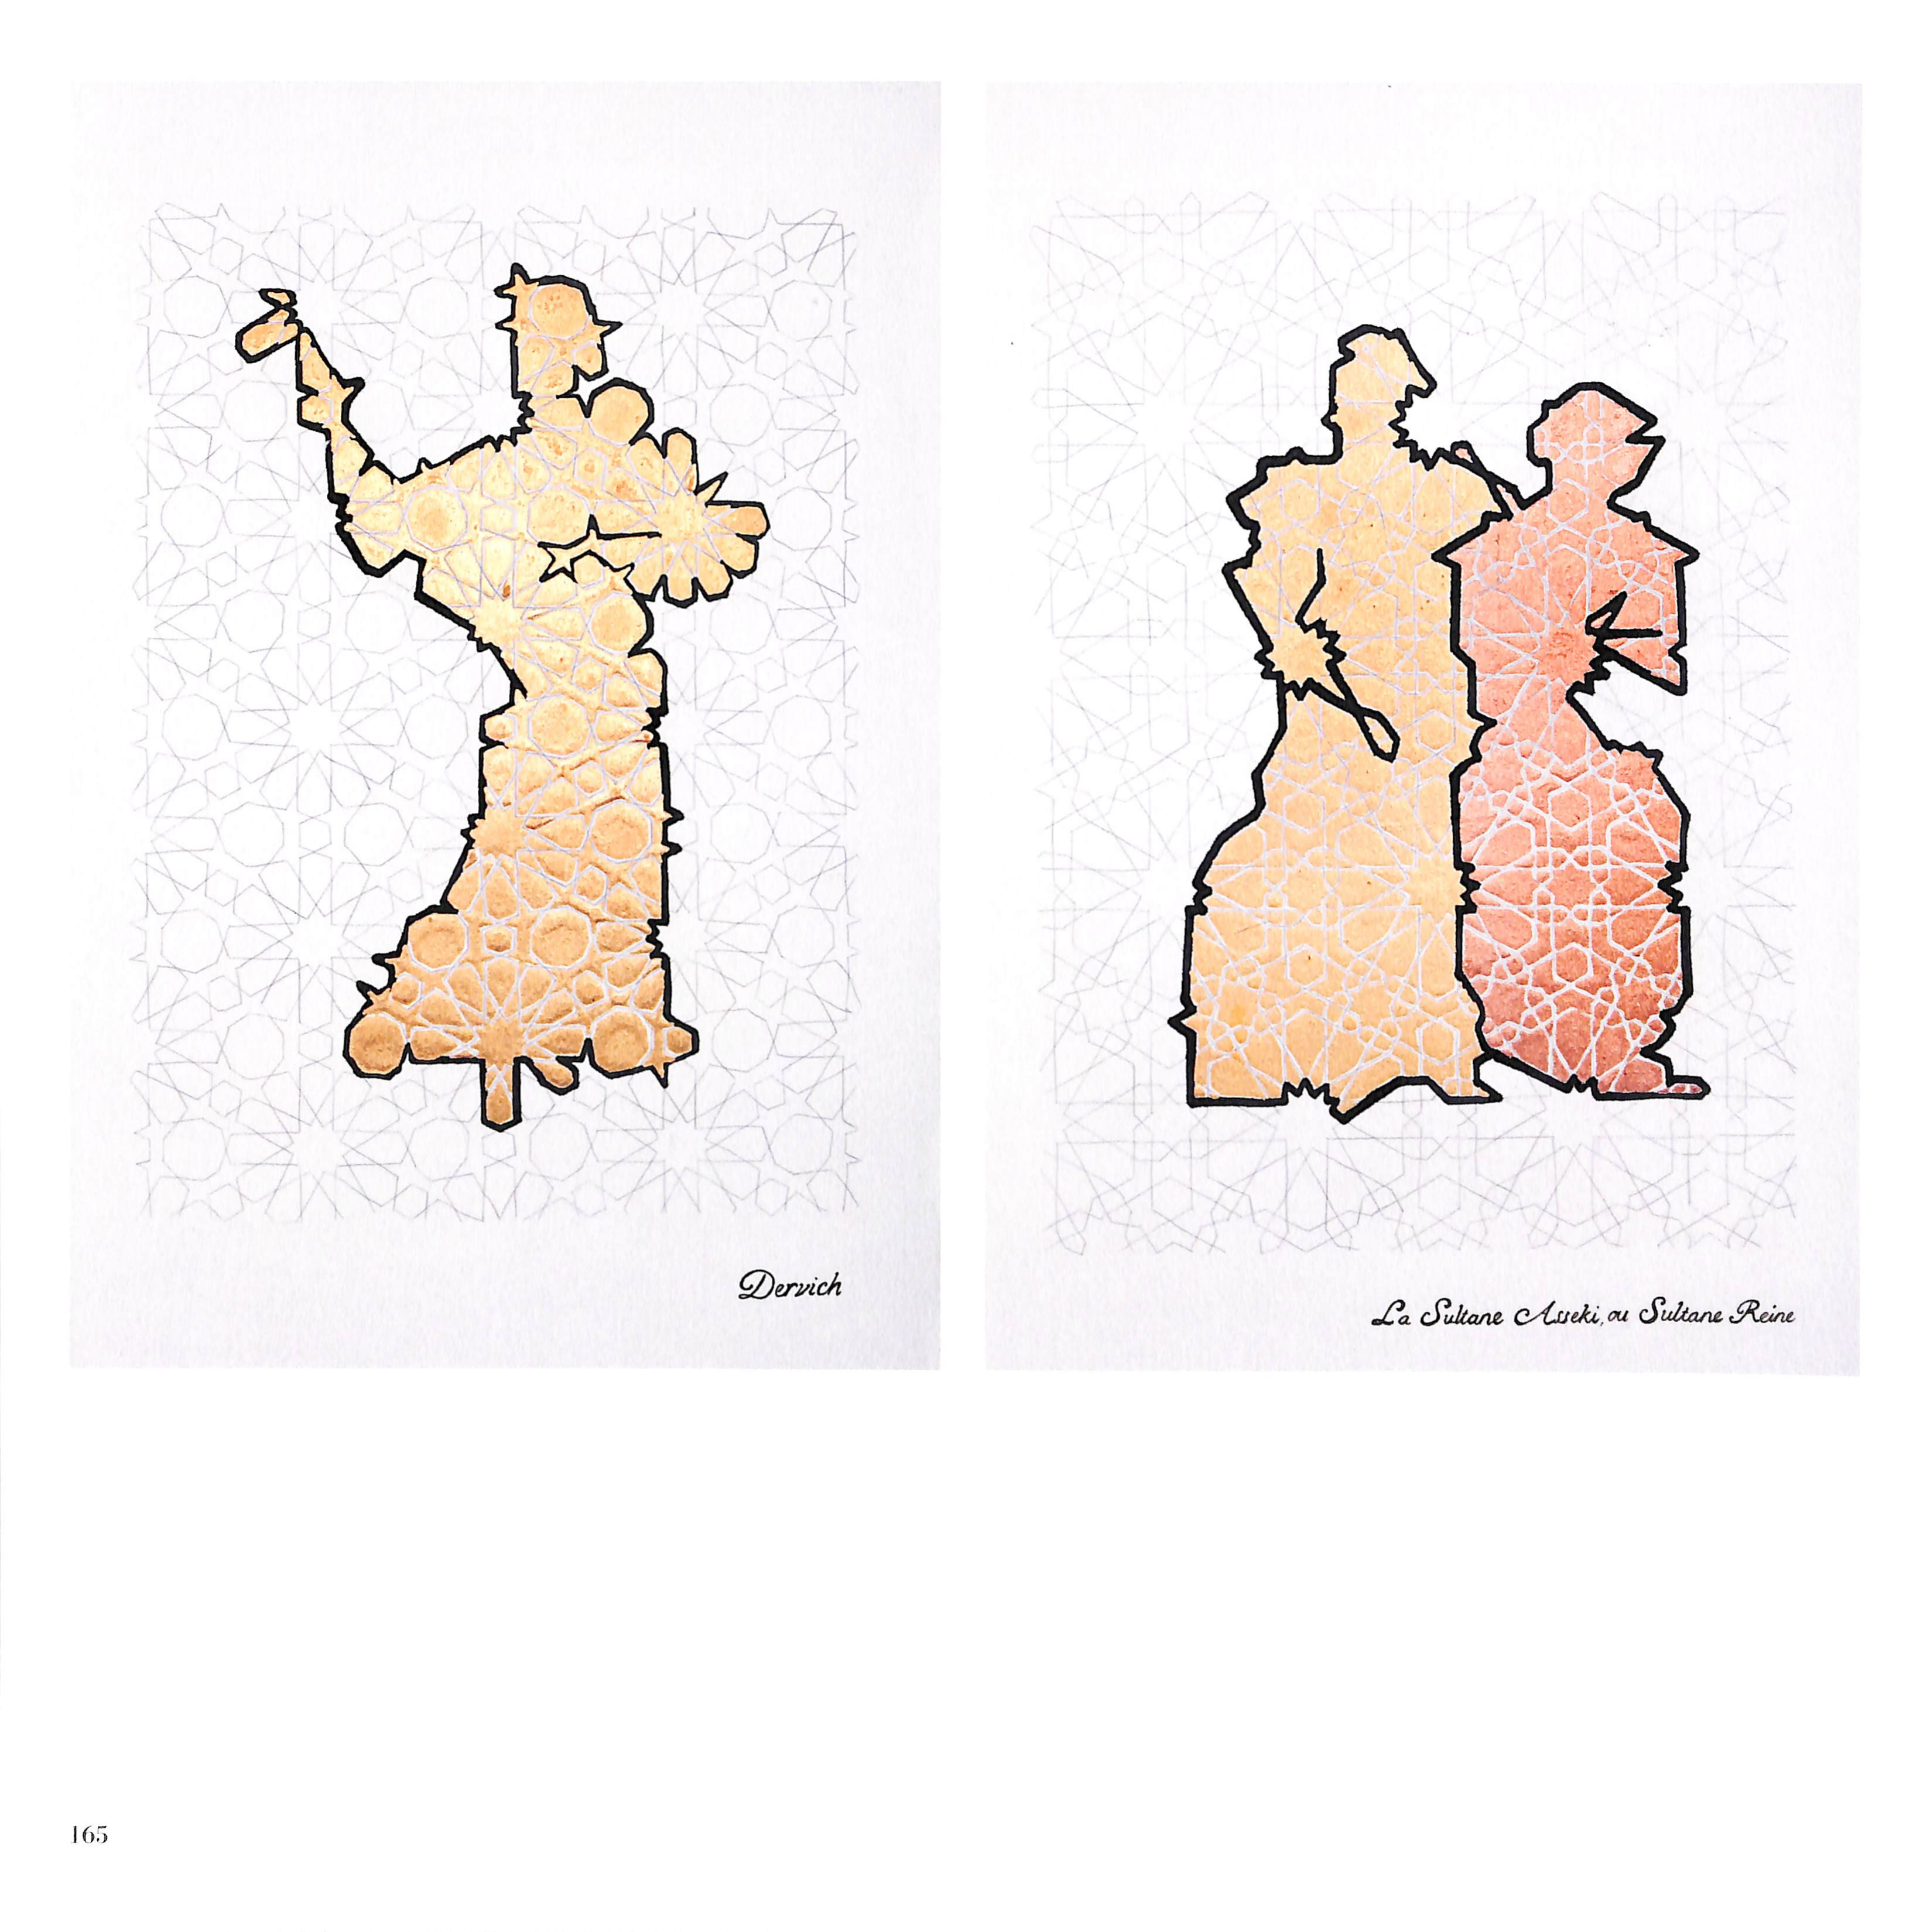 Dervich
La Sultane Asseki, ou Sultane Reine
165